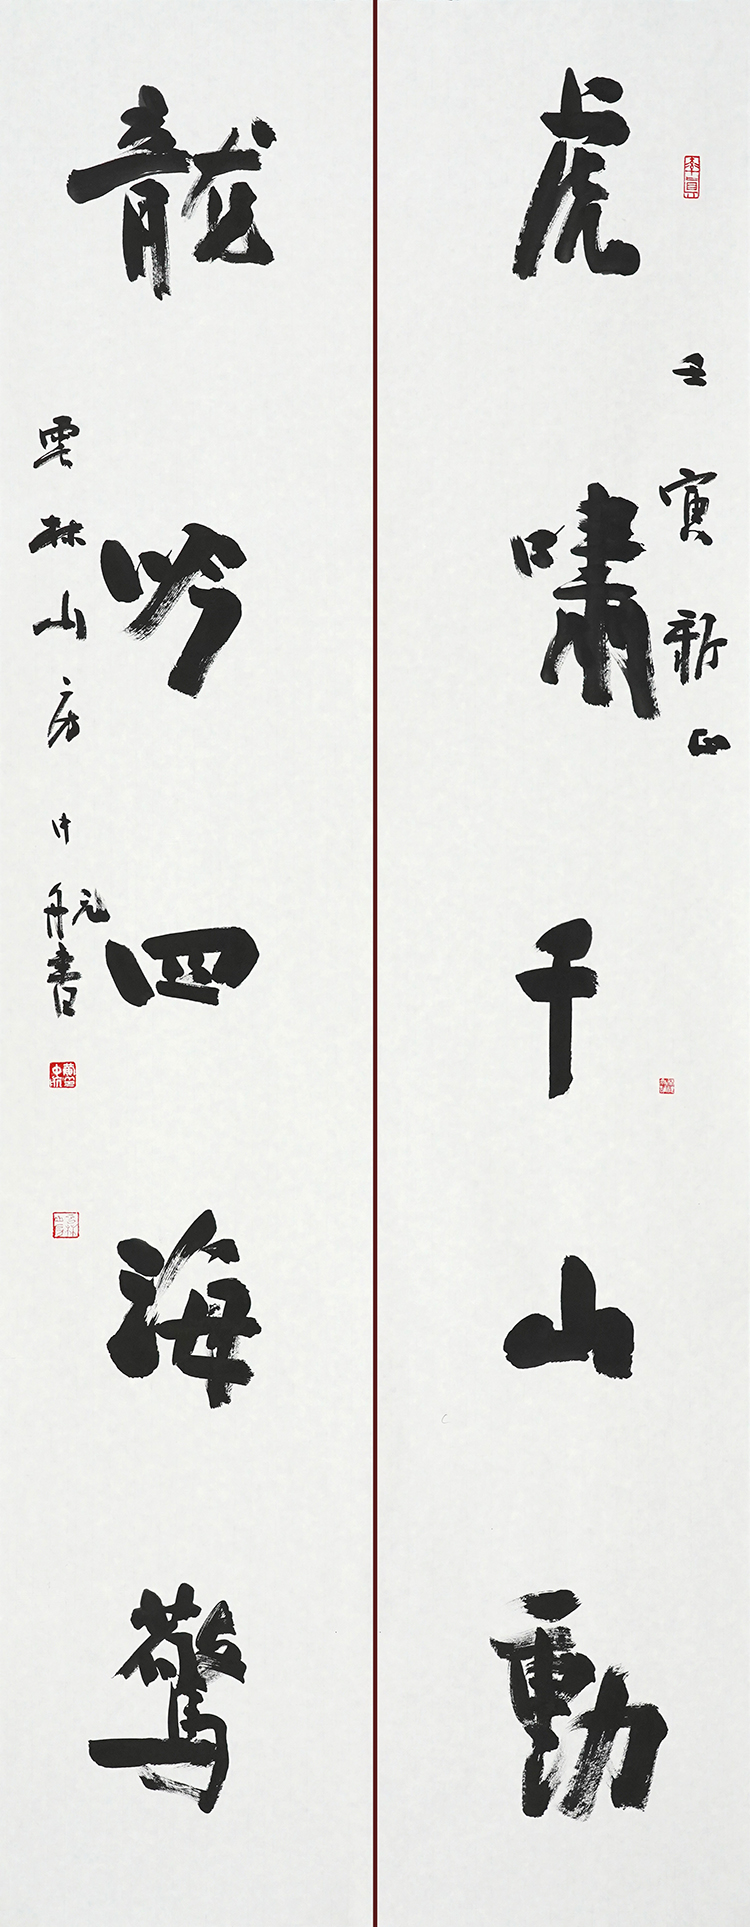 虎嘯千山動
壬寅新正
龍吟四海驚
雲林山房中航書